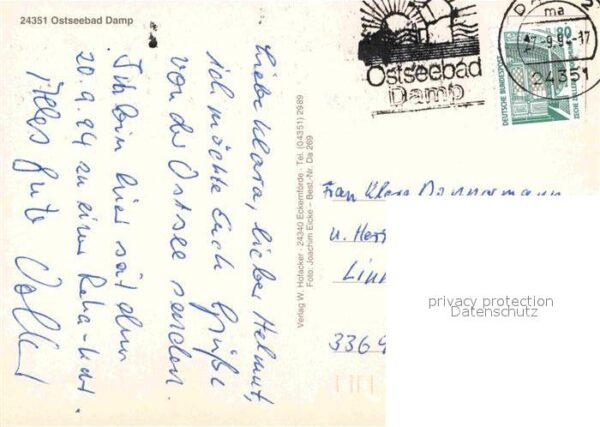 24351 Ostseebad Damp
Liebe Klara, lieber Helmut,
ich möchte Euch Grüße
von der Ostsee senden.
Ich bin hier seit dem
20.9.94 zu einer Reha-Kur.
Alles Gute
Verlag W. Hofacker · 24340 Eckernförde · Tel. (04351) 2989
Foto: Joachim Eicke – Best.-Nr. Da 269
Ostseebad
Damp
ma
24351
80
DEUTSCHE BUNDESPOST
Frau Klara
u. Herr
336
privacy protection
Datenschutz